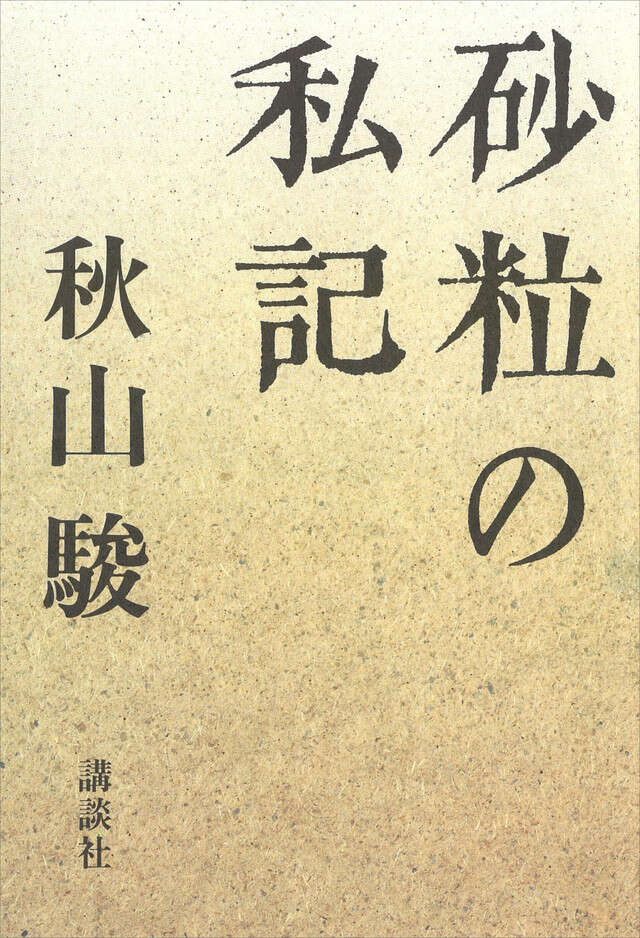 砂粒の
私記
秋山駿
講談社